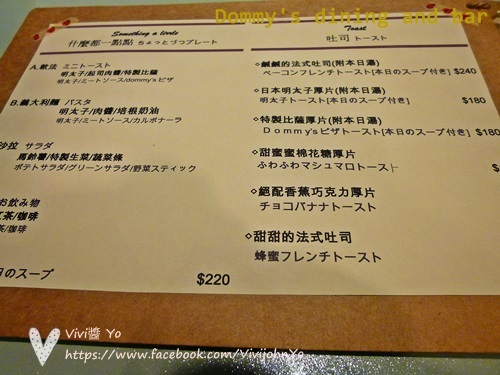 Dommy's dining and bar.
Something a little
什麼都一點點 ちょっとづつプレート
A.軟法 ミニトースト
明太子/起司肉醬/特製比薩
明太子/ミートソース/dommy's ピザ
B.義大利麵 パスタ
明太子/肉醬/培根奶油
明太子/ミートソース/カルボナーラ
沙拉 サラダ
馬鈴薯/特製生菜/蔬菜條
ポテトサラダ/グリーンサラダ/野菜スティック
お飲み物
茶/咖啡
茶/咖啡
日のスープ
$220
Toast
吐司 トースト
◇鹹鹹的法式吐司(附本日湯)
ベーコンフレンチトースト[本日のスープ付き] $240
◇日本明太子厚片(附本日湯)
明太子トースト[本日のスープ付き] $180
◇特製比薩厚片(附本日湯)
Dommy'sピザトースト[本日のスープ付き] $180
◇甜蜜蜜棉花糖厚片
ふわふわマシュマロトースト
◇絕配香蕉巧克力厚片
チョコバナナトースト
◇甜甜的法式吐司
蜂蜜フレンチトースト
Vivi醬 Yo
https://www.facebook.com/VivijohnYo